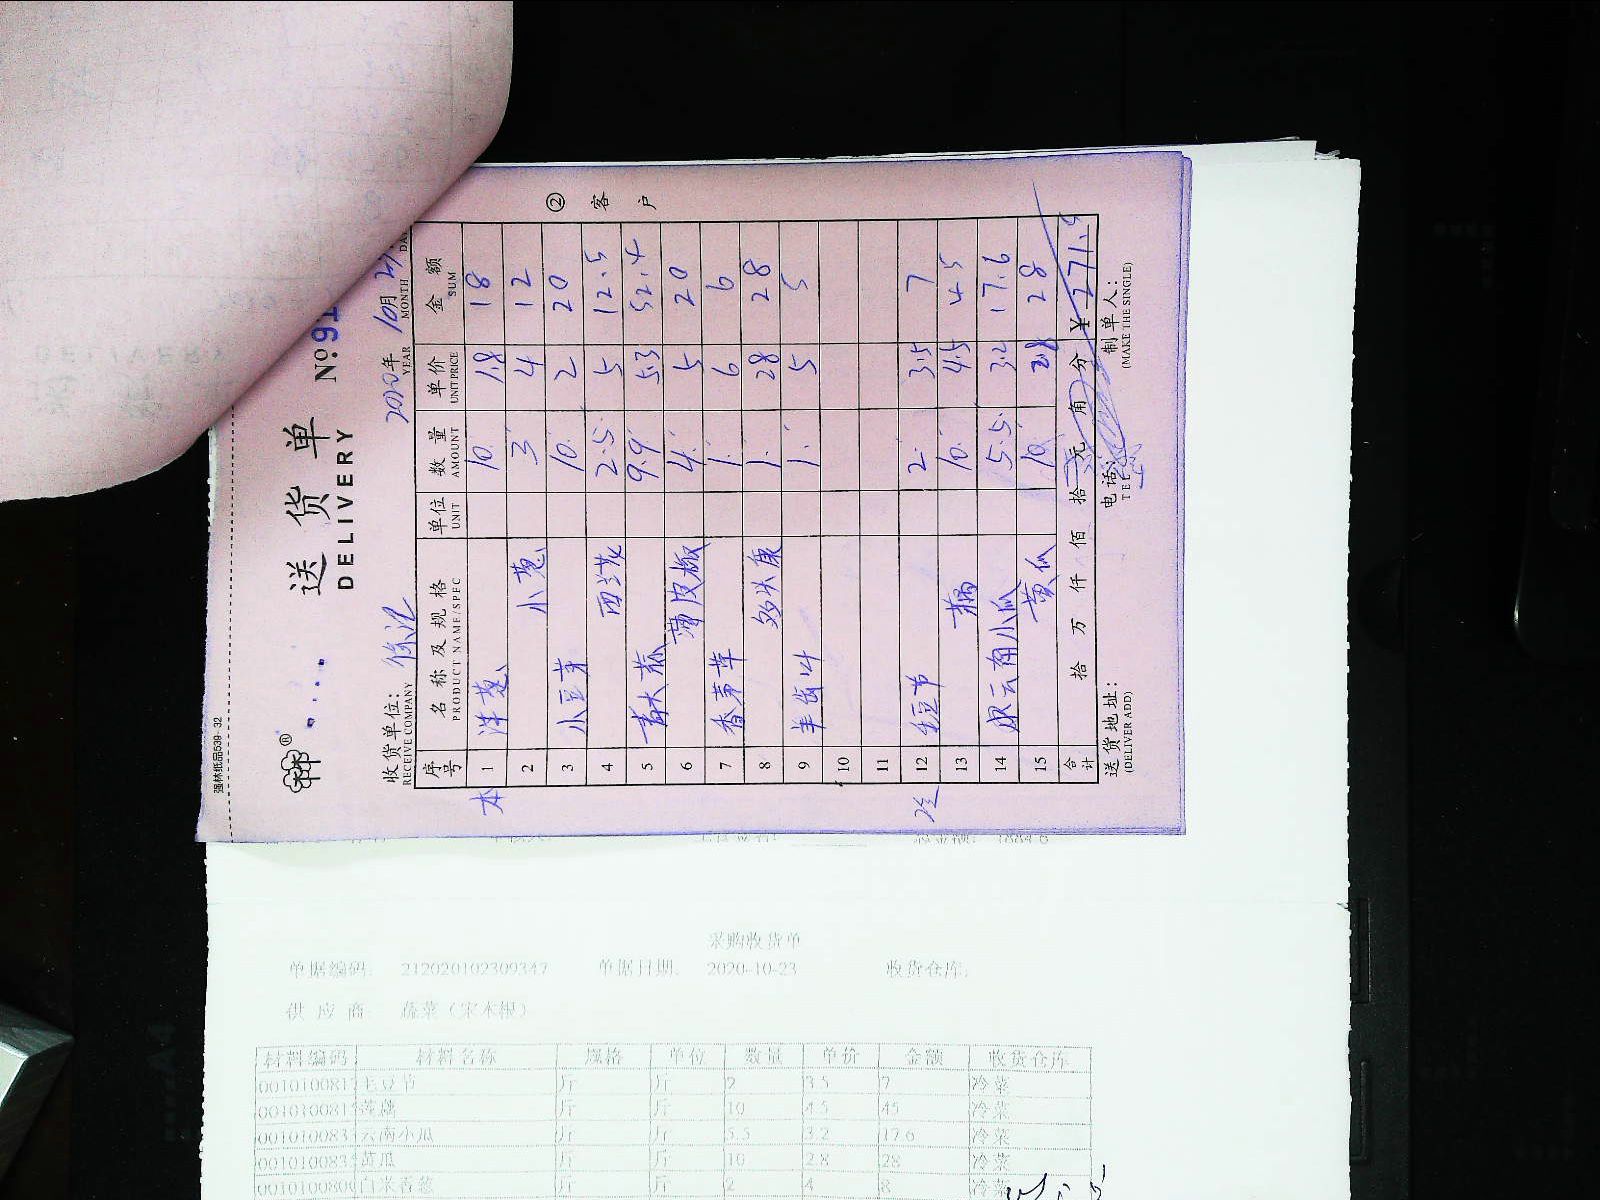 强林纸品539-32
送货单
DELIVERY
No:91
收货单位：
RECEIVE COMPANY
2020年 10月
YEAR MONTH
② 客户
序号 名称及规格 单位 数量 单价 金额
PRODUCT NAME/SPEC UNIT AMOUNT UNIT PRICE SUM
本 1 洋葱 10. 1.8 18
2 小葱 3 4 12
3 小豆芽 10. 2 20
4 西兰花 2.5. 5 12.5
5 9.9 5.3 52.4
6 薄皮椒 4. 5 20
7 香茅草 1. 6 6
8 1. 28 28
9 1. 5 5
10
11
12 2. 3.5 7
13 藕 10. 4.5 45
14 云南小瓜 5.5. 3.2 17.6
15 黄瓜 10 2.8 28
合计 拾 万 仟 佰 拾 元 角 分 ¥ 271.5
送货地址： 电话： 制单人：
(DELIVER ADD) TEL (MAKE THE SINGLE)
采购收货单
单据编码： 212020102309347 单据日期： 2020-10-23 收货仓库：
供应商： 蔬菜（宋本根）
材料编码 材料名称 规格 单位 数量 单价 金额 收货仓库
001010081 毛豆节 斤 斤 2 3.5 7 冷菜
001010081 莲藕 斤 斤 10 4.5 45 冷菜
001010083 云南小瓜 斤 斤 5.5 3.2 17.6 冷菜
001010083 黄瓜 斤 斤 10 2.8 28 冷菜
001010080 白米香葱 斤 斤 2 4 8 冷菜